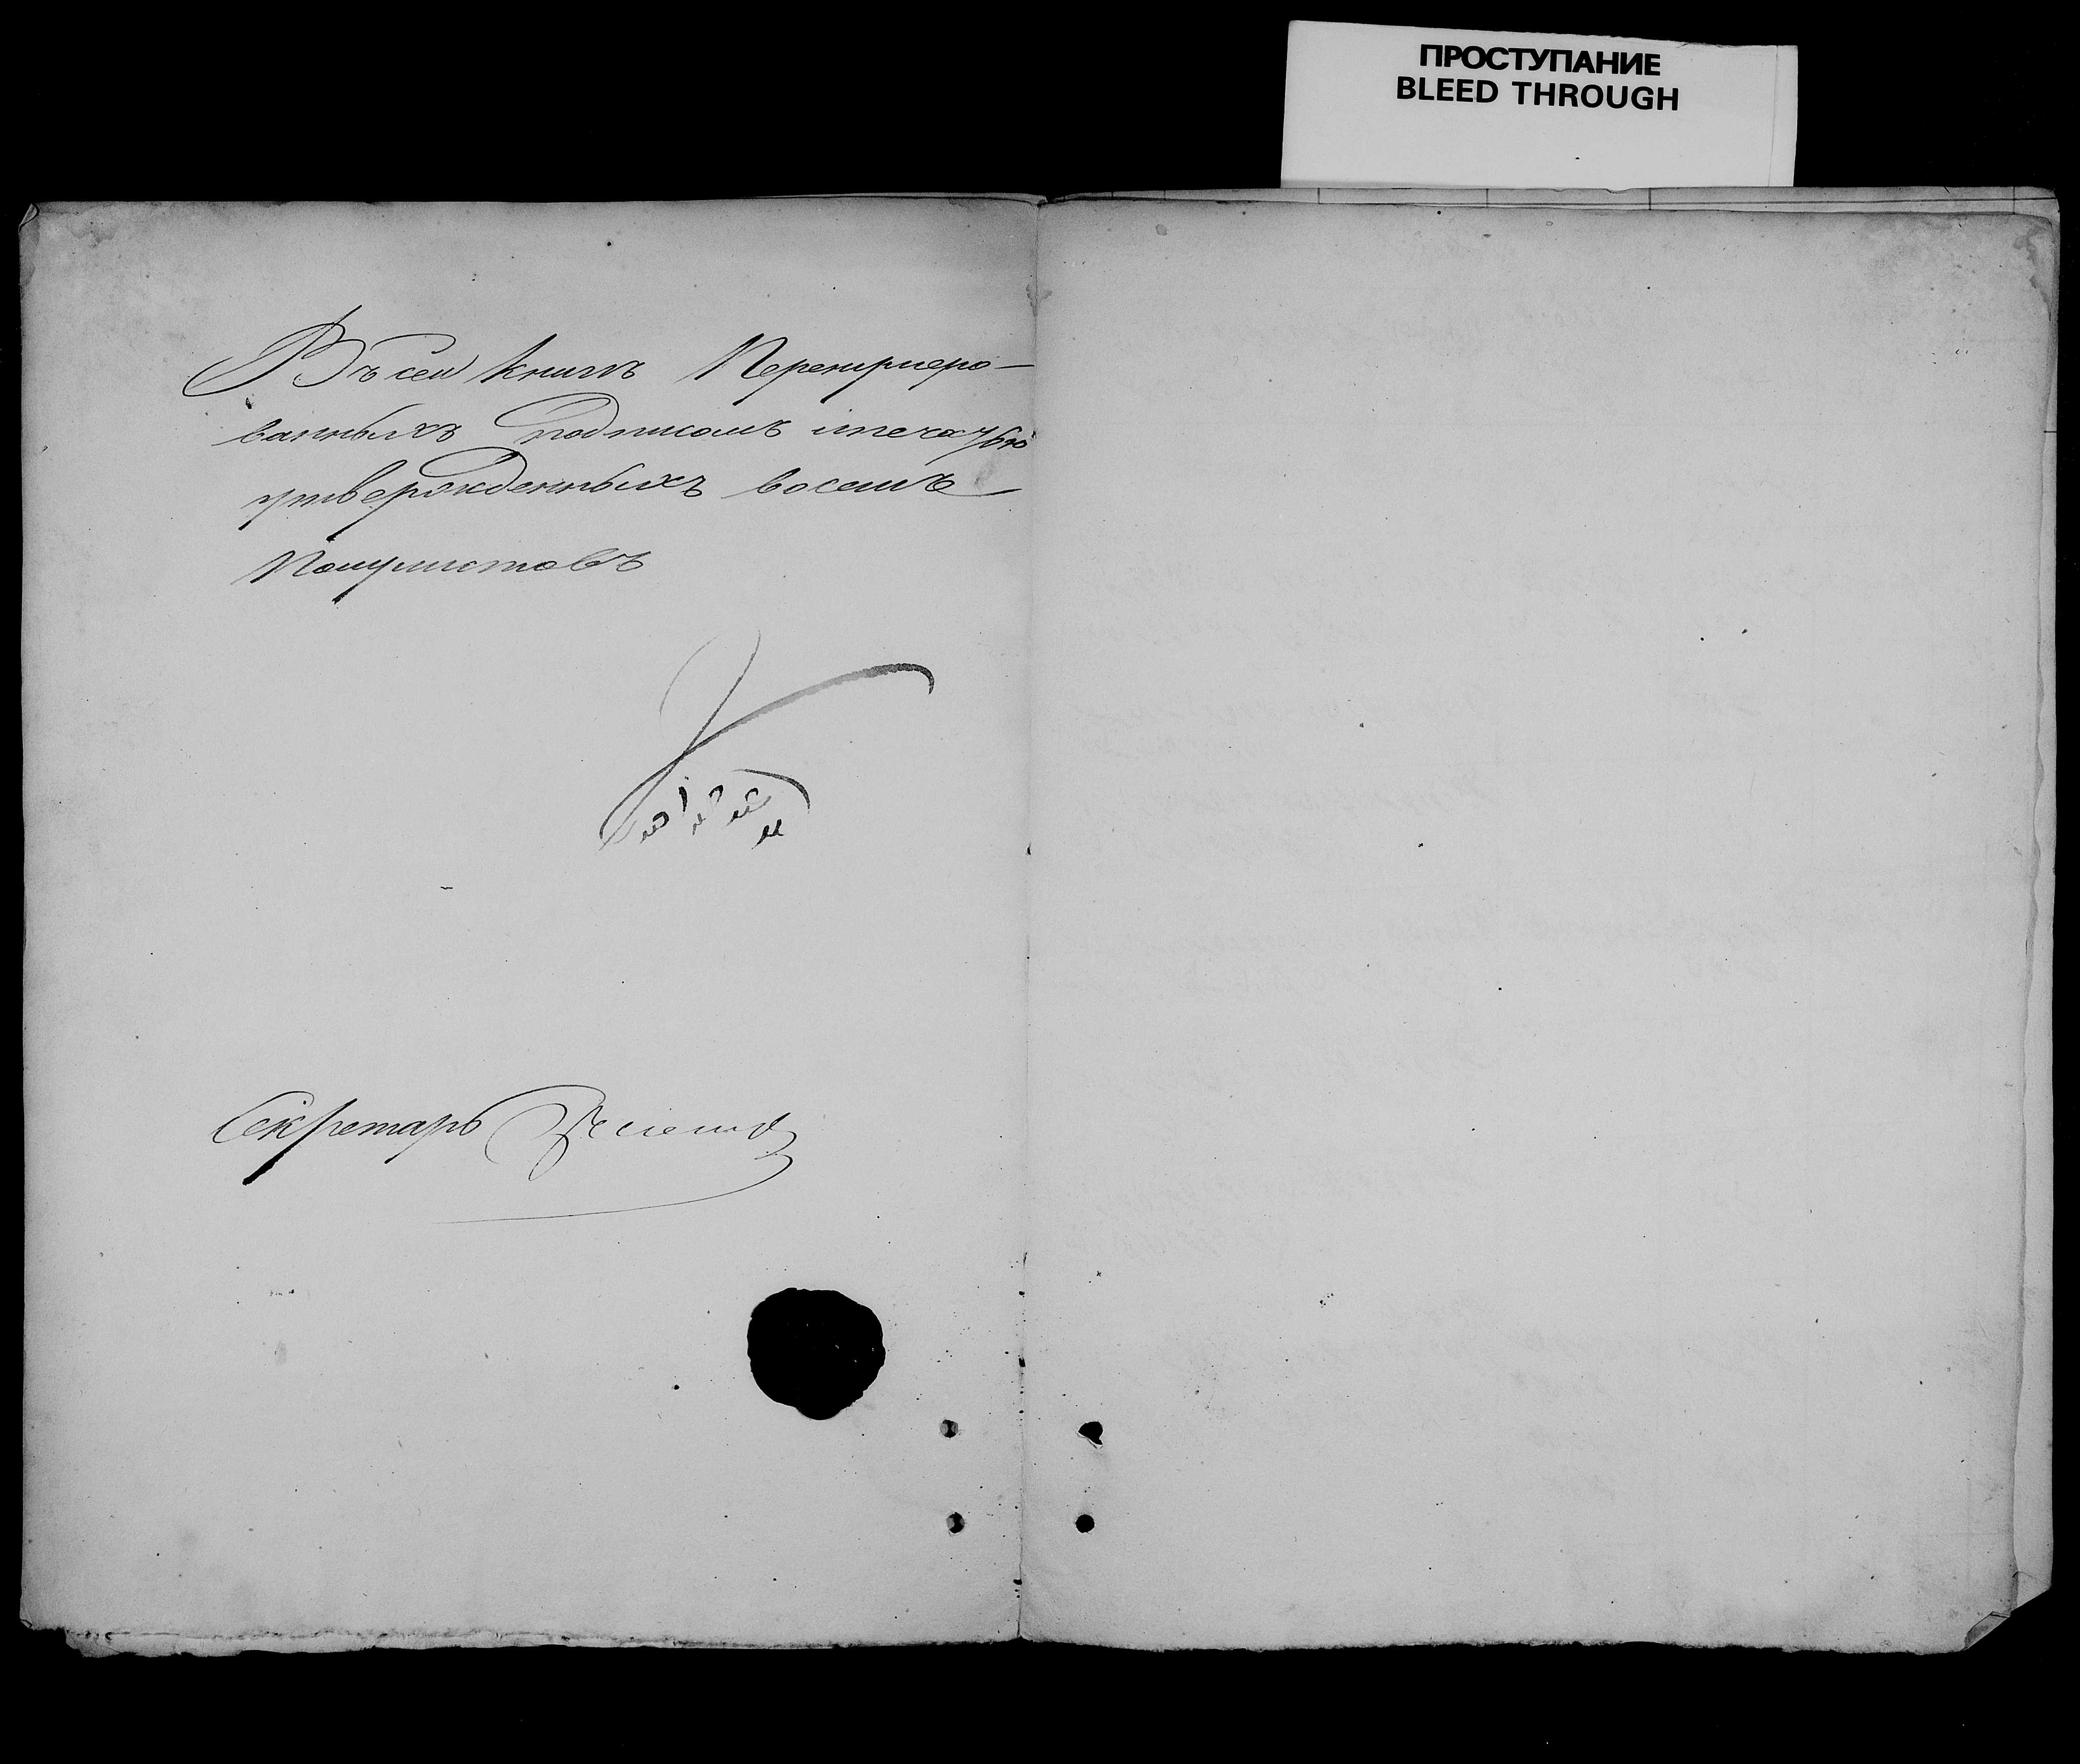 ПРОСТУПАНИЕ
BLEED THROUGH
Въ сеи книгѣ Перенумеро-
ванныхъ подписомъ ипечатью
утвержденныхъ восемь
Полулистовъ
Секретарь